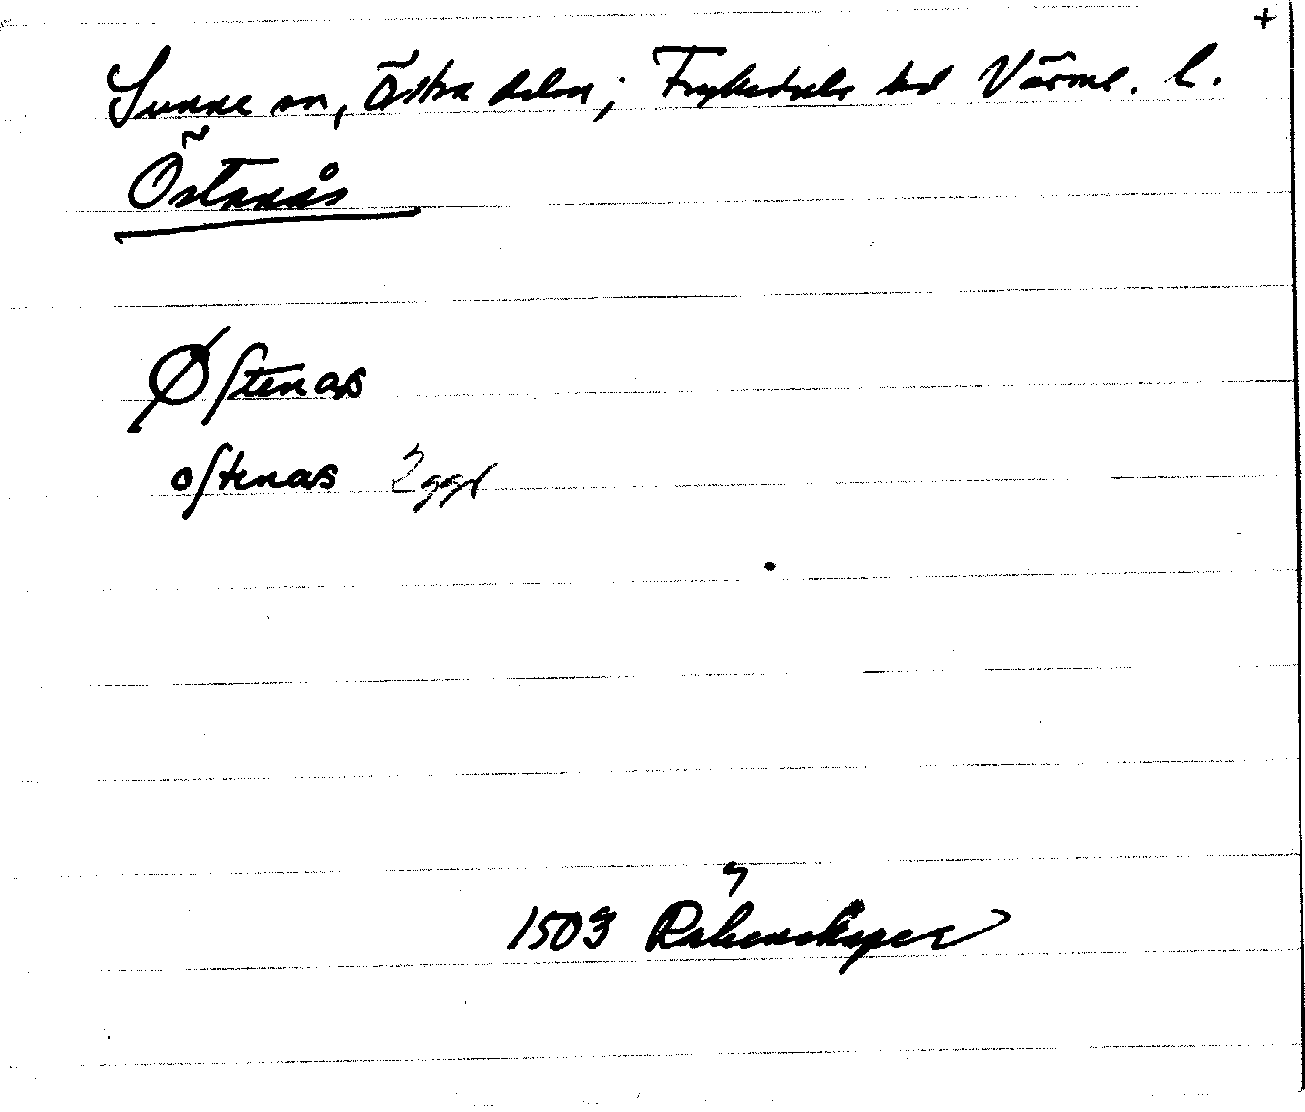 +
Sunne sn, Östra delen; Fryksdals hd Värml. l.
Östanås
Øſtenas
oſtenas 2 ggr
1503 Räkenskaper